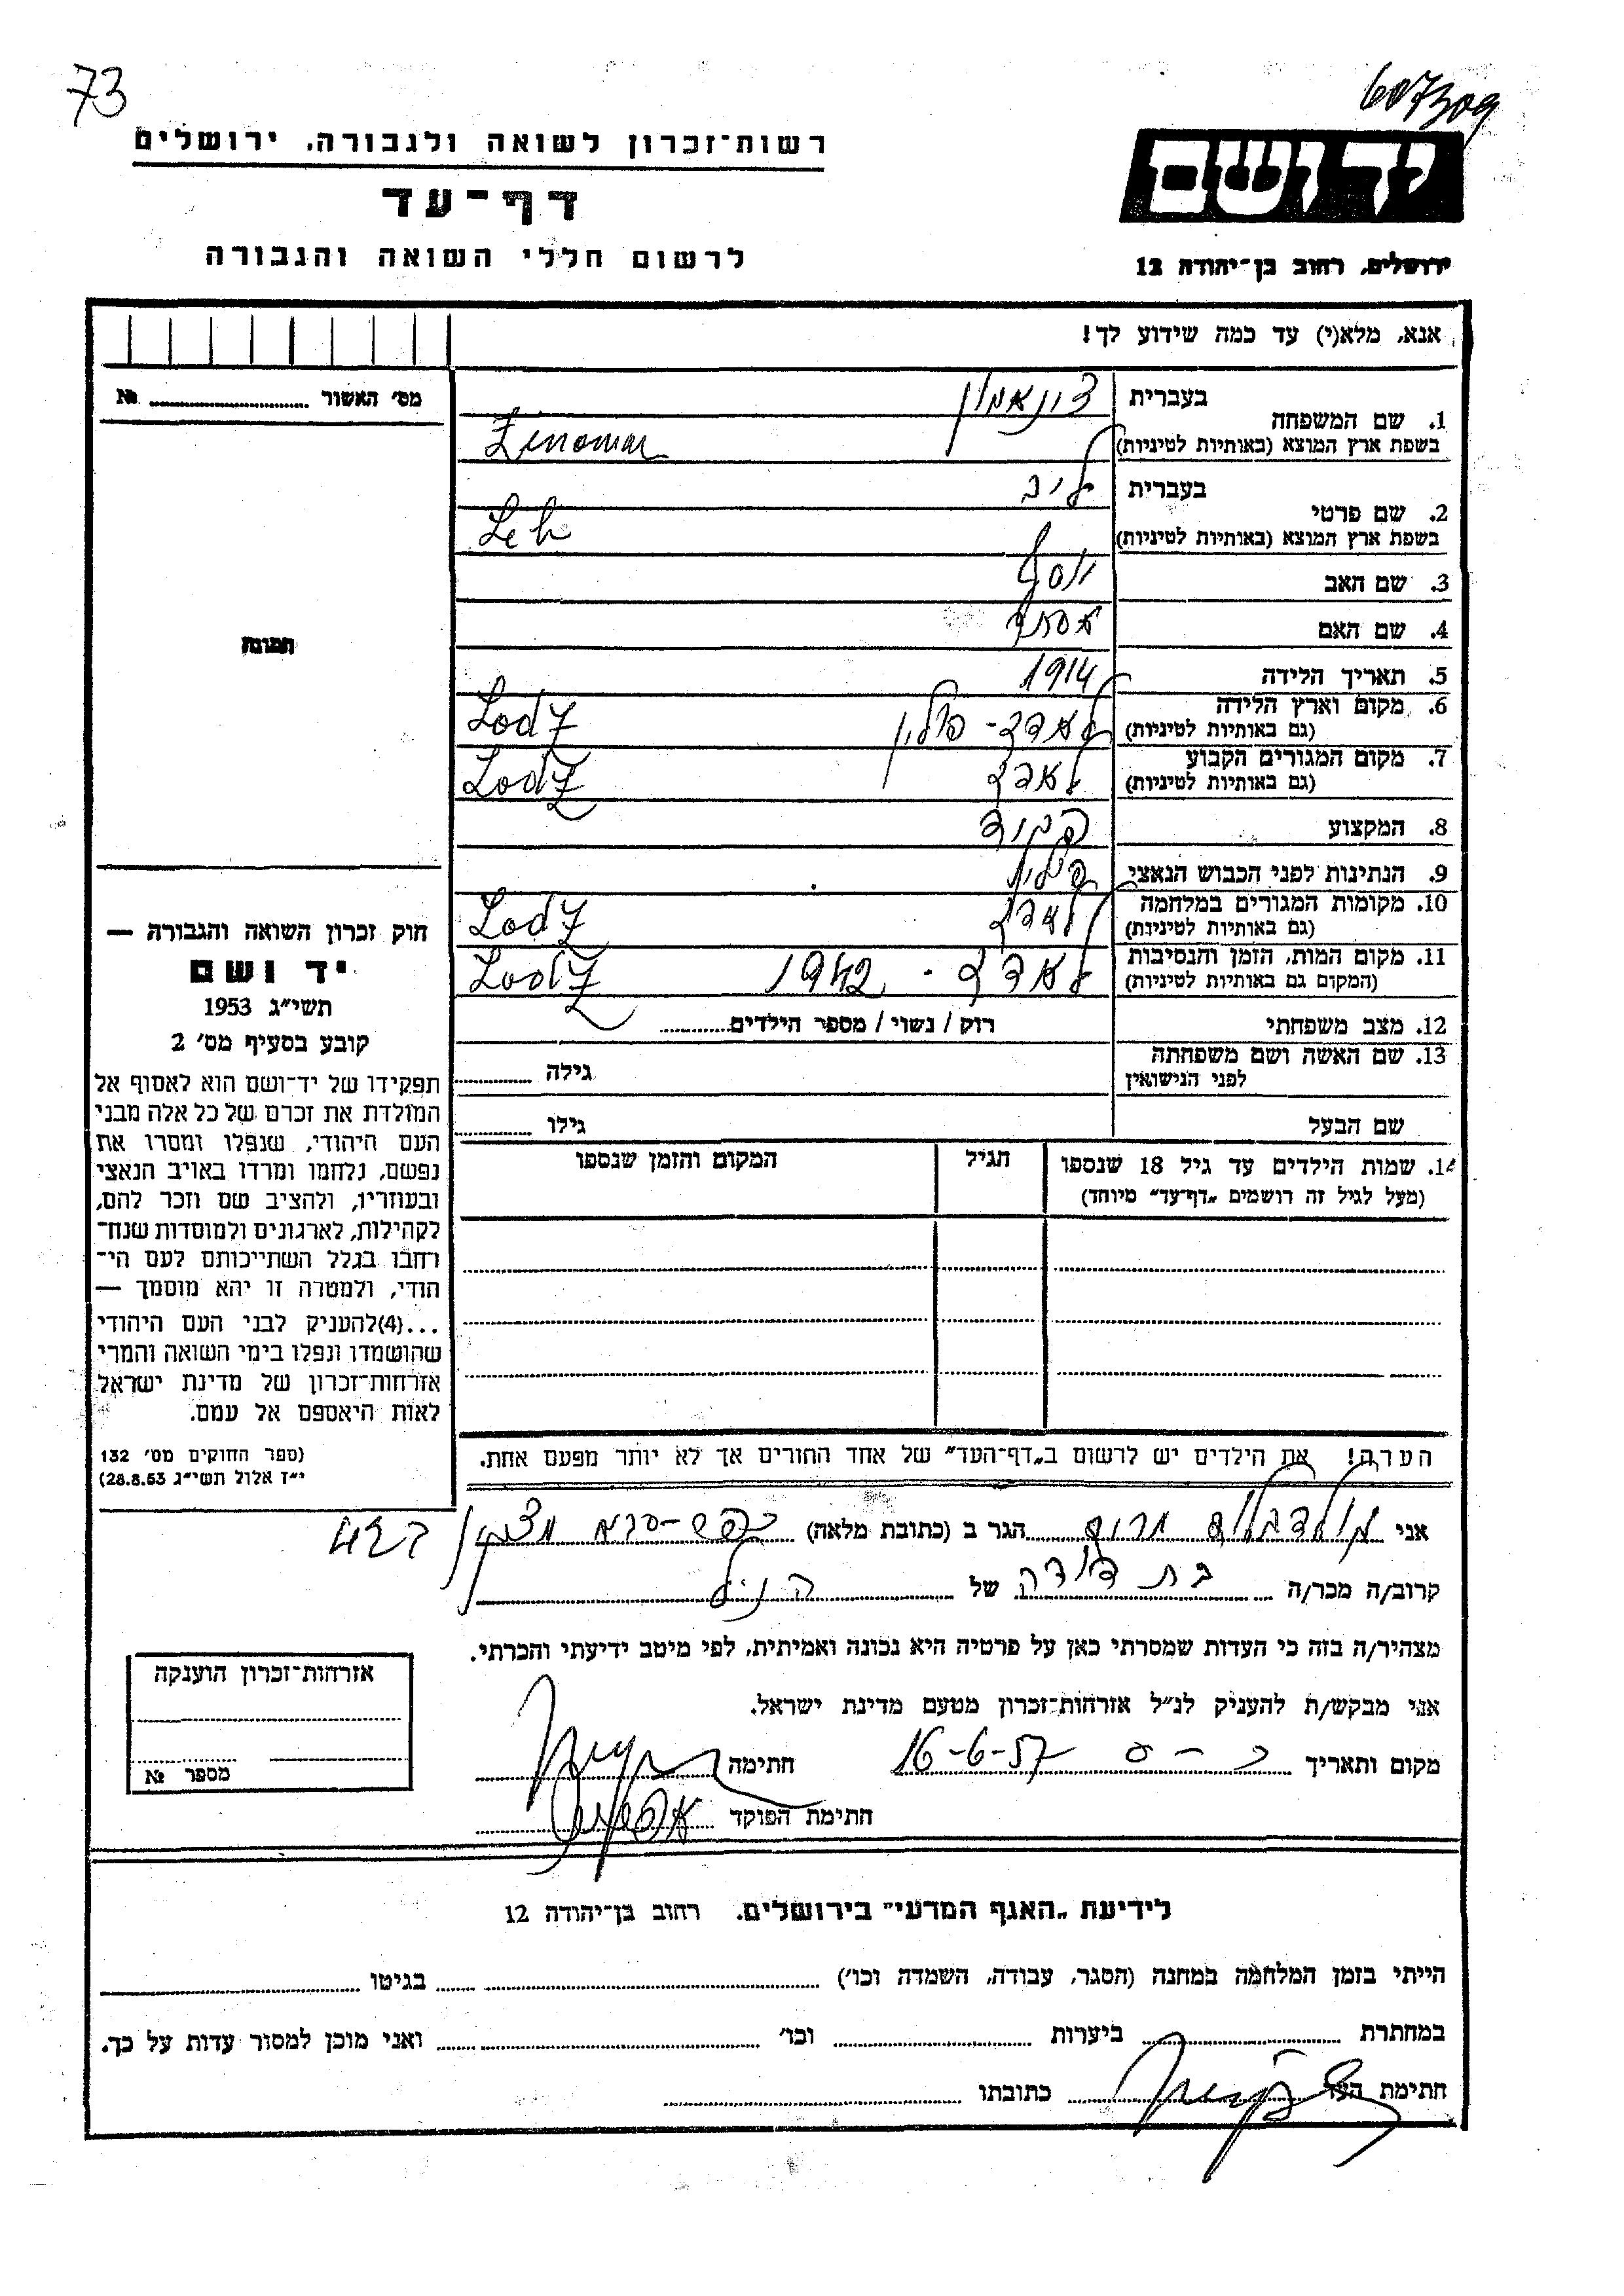 73
607309
רשות־זכרון לשואה ולגבורה, ירושלים
דף־עד
לרשום חללי השואה והגבורה
יד ושם
ירושלים, רחוב בן־יהודה 12
אנא, מלא(י) עד כמה שידוע לך!
מס׳ האשור № ..........
1. שם המשפחה בעברית
בשפת ארץ המוצא (באותיות לטיניות)
Zinaman
2. שם פרטי בעברית ליב
בשפת ארץ המוצא (באותיות לטיניות) Leb
3. שם האב יוסף
4. שם האם אסתר
5. תאריך הלידה 1914
6. מקום וארץ הלידה לאדז - פולין Lodz
(גם באותיות לטיניות)
7. מקום המגורים הקבוע לאדז Lodz
(גם באותיות לטיניות)
8. המקצוע פקיד
9. הנתינות לפני הכבוש הנאצי פולנית
10. מקומות המגורים במלחמה לאדז Lodz
(גם באותיות לטיניות)
11. מקום המות, הזמן והנסיבות לאדז - 1942 Lodz
(המקום גם באותיות לטיניות)
12. מצב משפחתי רוק / נשוי / מספר הילדים..........
13. שם האשה ושם משפחתה
לפני הנישואין גילה ..........
שם הבעל גילו ..........
14. שמות הילדים עד גיל 18 שנספו הגיל המקום והזמן שנספו
(מעל לגיל זה רושמים „דף־עד״ מיוחד)
הערה! את הילדים יש לרשום ב„דף־העד״ של אחד ההורים אך לא יותר מפעם אחת.
תמונה
חוק זכרון השואה והגבורה —
יד ושם
תשי״ג 1953
קובע בסעיף מס׳ 2
תפקידו של יד־ושם הוא לאסוף אל
המולדת את זכרם של כל אלה מבני
העם היהודי, שנפלו ומסרו את
נפשם, נלחמו ומרדו באויב הנאצי
ובעוזריו, ולהציב שם וזכר להם,
לקהילות, לארגונים ולמוסדות שנח־
רבו בגלל השתייכותם לעם הי־
הודי, ולמטרה זו יהא מוסמך —
...(4)להעניק לבני העם היהודי
שהושמדו ונפלו בימי השואה והמרי
אזרחות־זכרון של מדינת ישראל
לאות היאספם אל עמם.
(ספר החוקים מס׳ 132
י״ז אלול תשי״ג 28.8.53)
אני הגר ב (כתובת מלאה) כפר-סבא
קרוב/ה מכר/ה בת דודה של הנ״ל
מצהיר/ה בזה כי העדות שמסרתי כאן על פרטיה היא נכונה ואמיתית, לפי מיטב ידיעתי והכרתי.
אני מבקש/ת להעניק לנ״ל אזרחות־זכרון מטעם מדינת ישראל.
מקום ותאריך כ - ס 16-6-57 חתימה
חתימת הפוקד
אזרחות־זכרון הוענקה
מספר №
לידיעת „האגף המדעי״ בירושלים, רחוב בן־יהודה 12
הייתי בזמן המלחמה במחנה (הסגר, עבודה, השמדה וכו׳) .......... בגיטו ..........
במחתרת .......... ביערות .......... וכו׳ .......... ואני מוכן למסור עדות על כך.
חתימת העד .......... כתובתו ..........